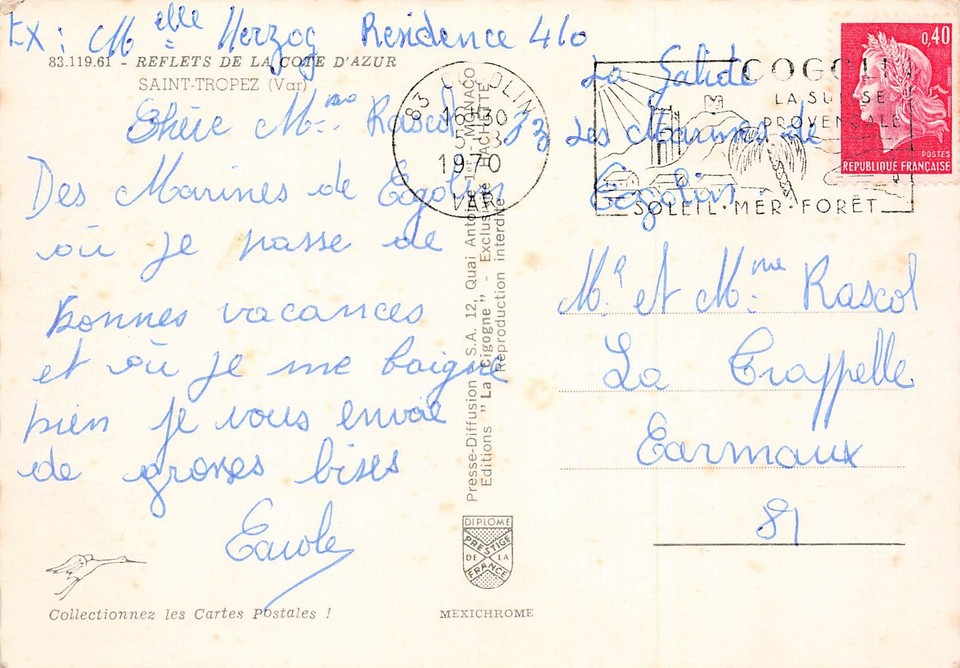 Ex : Melle Herzog Residence 410
La Galiote
Les Marines de
Cogolin
83
83.119.61 - REFLETS DE LA COTE D'AZUR
SAINT-TROPEZ (Var)
Chère Mme Rascol
Des Marines de Cogolin
où je passe de
bonnes vacances
et où je me baigne
bien je vous envoie
de grosses bises
Carole
83 COGOLIN
16 H 30
5 - 8
1970
VAR
COGOLIN
LA SUISSE
PROVENÇALE
SOLEIL · MER · FORÊT
0,40
POSTES
REPUBLIQUE FRANÇAISE
Mr et Mme Rascol
La Crappelle
Carmaux
81
Presse-Diffusion S.A. 12, Quai Antoine 1er MONACO
Editions "La Cigogne" - Exclusivité HACHETTE
Reproduction interdite
DIPLOME
PRESTIGE
DE LA
FRANCE
Collectionnez les Cartes Postales !
MEXICHROME